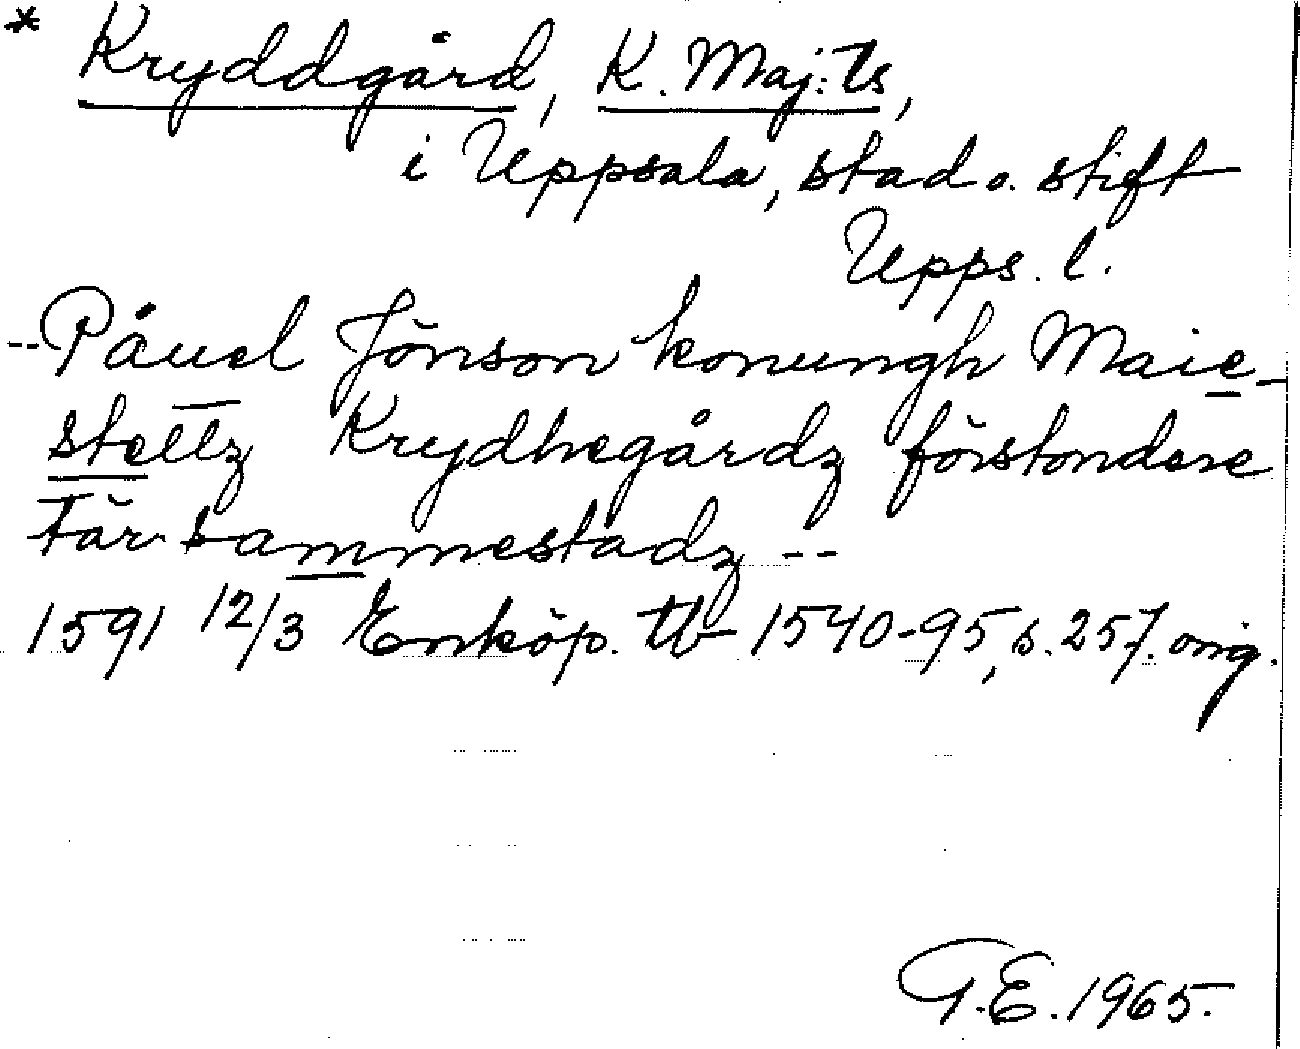 * Kryddgård, K. Maj:ts,
i Uppsala, stad o. stift
Upps. l.
-- Påuel Jönson konungh Maie-
stettz Krydhegårdz förstondere
tär sammestadz --
1591 12/3 Enköp. tb 1540-95, s. 257. orig.
G.E. 1965.